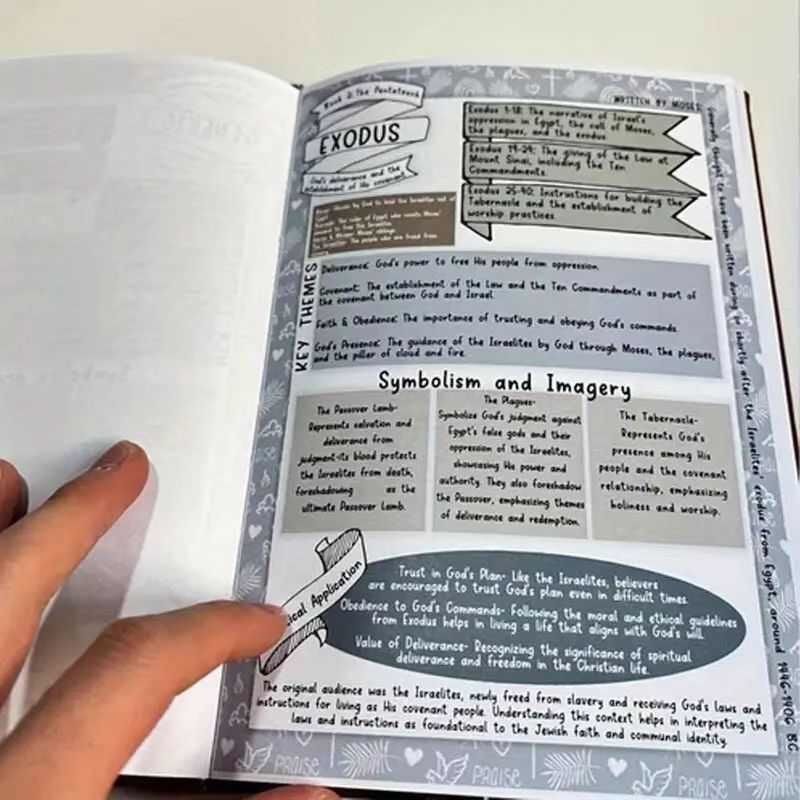 Book 2: The Pentateuch
EXODUS
God's deliverance and the
establishment of His covenant
WRITTEN BY MOSES
Exodus 1-18: The narrative of Israel's
oppression in Egypt, the call of Moses,
the plagues, and the exodus.
Exodus 19-24: The giving of the Law at
Mount Sinai, including the Ten
Commandments.
Exodus 25-40: Instructions for building the
Tabernacle and the establishment of
worship practices.
chosen by God to lead the Israelites out of
Egypt
The ruler of Egypt who resists Moses'
The Israelites: The people who are freed from
KEY THEMES
Deliverance: God's power to free His people from oppression.
Covenant: The establishment of the Law and the Ten Commandments as part of
the covenant between God and Israel.
Faith & Obedience: The importance of trusting and obeying God's commands.
God's Presence: The guidance of the Israelites by God through Moses, the plagues,
and the pillar of cloud and fire.
Symbolism and Imagery
The Passover Lamb-
Represents salvation and
deliverance from
judgment-its blood protects
the Israelites from death,
foreshadowing as the
ultimate Passover Lamb.
The Plagues-
Symbolize God's judgment against
Egypt's false gods and their
oppression of the Israelites,
showcasing His power and
authority. They also foreshadow
the Passover, emphasizing themes
of deliverance and redemption.
The Tabernacle-
Represents God's
presence among His
people and the covenant
relationship, emphasizing
holiness and worship.
ical Application
Trust in God's Plan- Like the Israelites, believers
are encouraged to trust God's plan even in difficult times.
Obedience to God's Commands- Following the moral and ethical guidelines
from Exodus helps in living a life that aligns with God's will.
Value of Deliverance- Recognizing the significance of spiritual
deliverance and freedom in the Christian life.
The original audience was the Israelites, newly freed from slavery and receiving God's laws and
instructions for living as His covenant people. Understanding this context helps in interpreting the
laws and instructions as foundational to the Jewish faith and communal identity.
Generally thought to have been written during or shortly after the Israelites' exodus from Egypt, around 1446-1406 BC
PRAISE
PRAISE
PRAISE